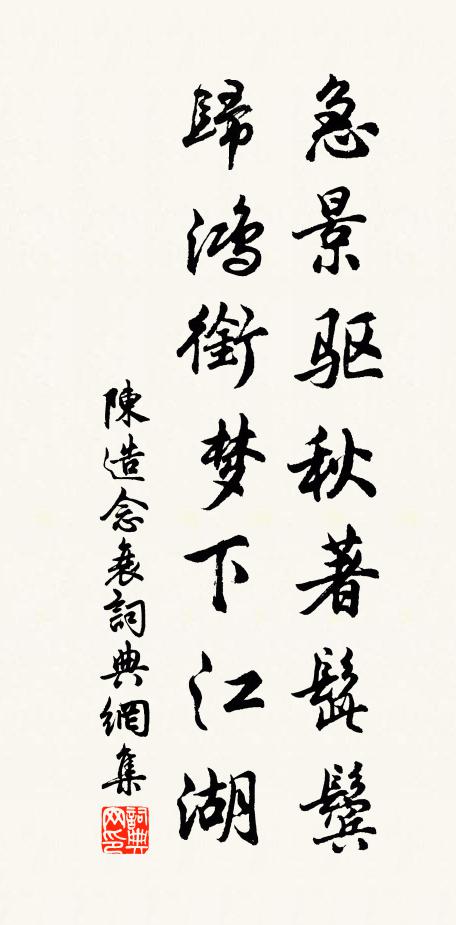 急景驱秋著髭鬓
歸鴻銜梦下江湖
陳造念衰詞典網集
詞典網印